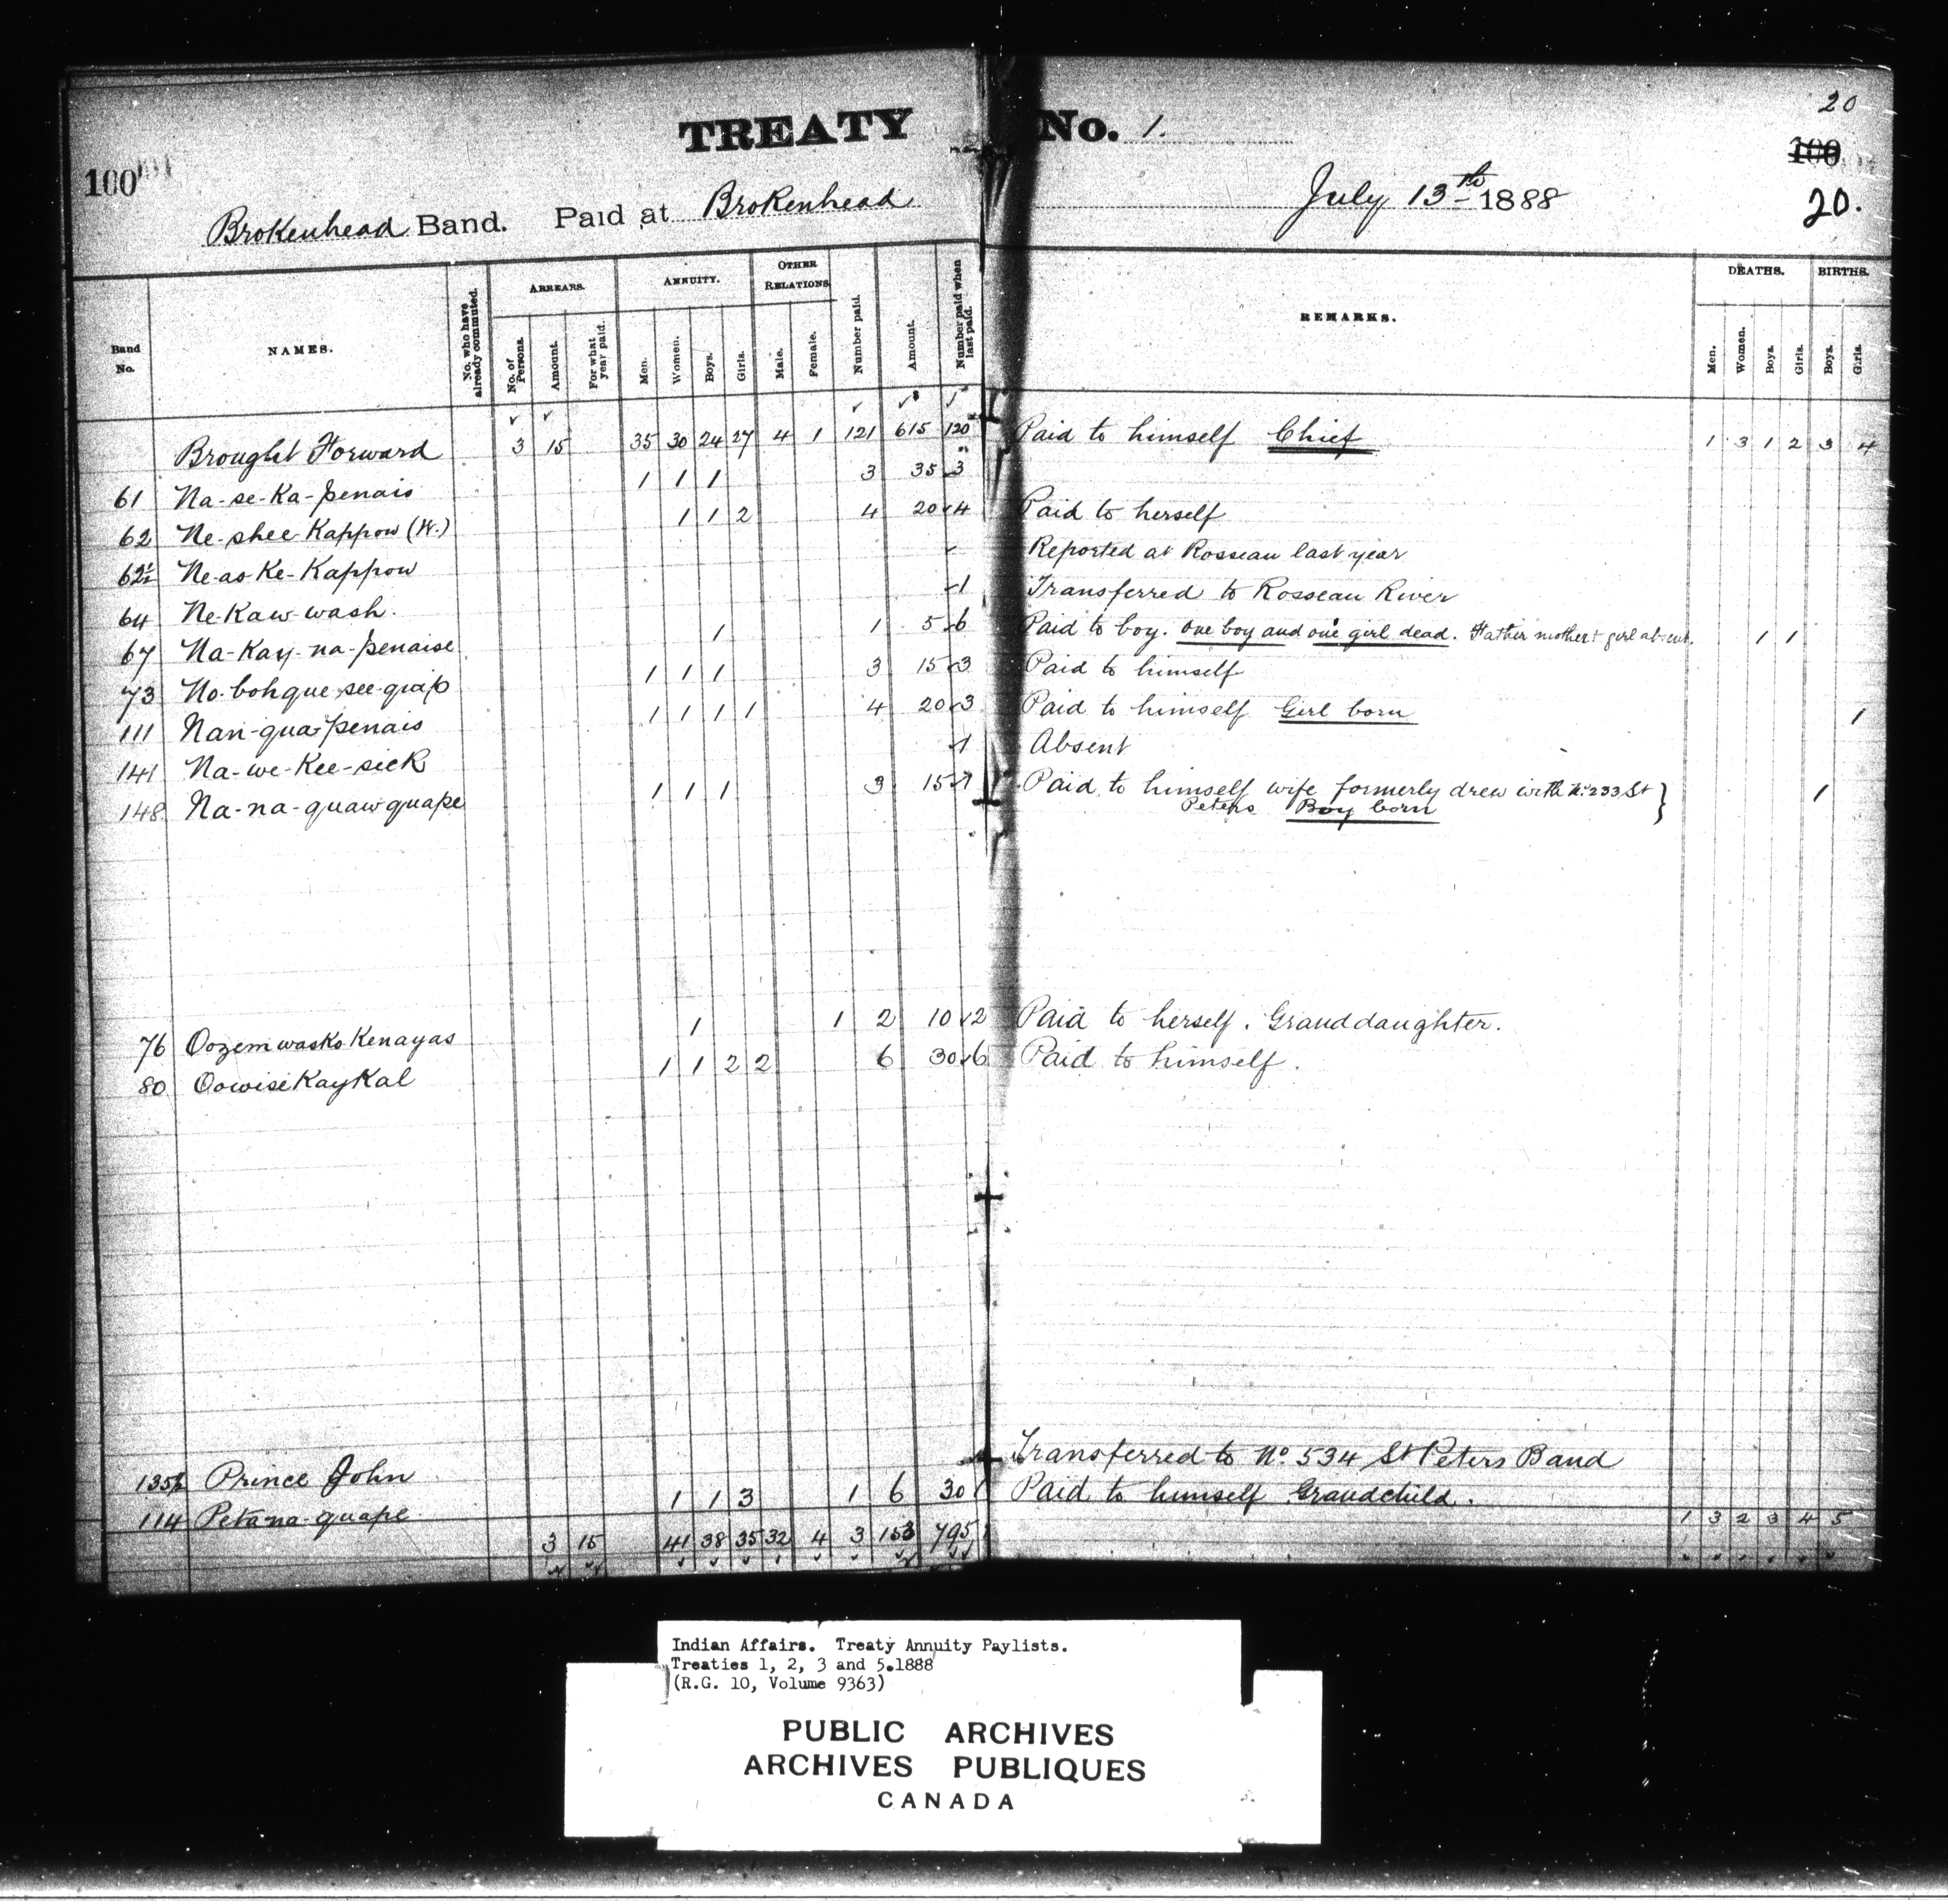 20
TREATY No. 1.
100 100
Brokenhead Band. Paid at Brokenhead July 13th 1888 20.
Band No. NAMES. No. who have already commuted. ARREARS. No. of Persons. Amount. For what year paid. ANNUITY. Men. Women. Boys. Girls. OTHER RELATIONS Male. Female. Number paid. Amount. Number paid when last paid. REMARKS. DEATHS. Men. Women. Boys. Girls. BIRTHS. Boys. Girls.
Brought Forward 3 15 35 30 24 27 4 1 121 615 120 1 3 1 2 3 4
61 Na-se-Ka-penais 1 1 1 3 35 3 Paid to himself Chief
62 Ne-shee-Kappow (W.) 1 1 2 4 20 4 Paid to herself
62½ Ne-as-Ke-Kappow Reported at Rosseau last year
64 Ne-Kaw-wash. 1 Transferred to Rosseau River
67 Na-Kay-na-penaise 1 1 5 6 Paid to boy. One boy and one girl dead. Father mother + girl absent. 1 1
73 No-bohque-see-quap 1 1 1 3 15 3 Paid to himself
111 Nan-qua-penais 1 1 1 1 4 20 3 Paid to himself Girl born 1
141 Na-we-Kee-sick 1 Absent
148 Na-na-quaw-quape 1 1 1 3 15 1 Paid to himself wife formerly drew with No 233 St
Peters Boy born } 1
76 Oozemwasko Kenayas 1 1 2 10 2 Paid to herself. Granddaughter.
80 OowiseKayKal 1 1 2 2 6 30 6 Paid to himself.
135½ Prince John Transferred to No. 534 St Peters Band
114 Petana-quape 1 1 3 1 6 30 Paid to himself Grandchild.
3 15 41 38 35 32 4 3 153 795 1 3 2 3 4 5
Indian Affairs. Treaty Annuity Paylists.
Treaties 1, 2, 3 and 5.1888
(R.G. 10, Volume 9363)
PUBLIC ARCHIVES
ARCHIVES PUBLIQUES
CANADA